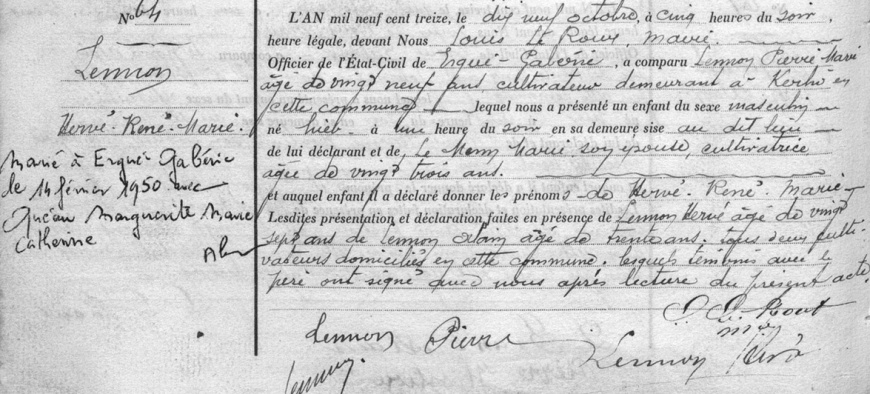 No 64
Lennon
Hervé-René-Marie.
Marié à Ergué-Gabéric
le 14 février 1950 avec
Marguerite Marie
Catherine
L'AN mil neuf cent treize, le dix neuf octobre, à cinq heures du soir,
heure légale, devant Nous Louis Le Roux, maire.
Officier de l'État-Civil de Ergué-Gabéric, a comparu Lennon Pierre Marie
âgé de vingt neuf ans, cultivateur demeurant à Kerho en
cette commune lequel nous a présenté un enfant du sexe masculin
né hier à une heure du soir en sa demeure sise au dit lieu
de lui déclarant et de Le Marie, son épouse, cultivatrice
âgée de vingt trois ans.
et auquel enfant il a déclaré donner les prénoms de Hervé-René-Marie
Lesdites présentation et déclaration faites en présence de Lennon Hervé âgé de vingt
sept ans de Lennon Alain âgé de trente ans, tous deux culti-
vateurs domiciliés en cette commune, lesquels témoins avec le
père ont signé avec nous après lecture du présent acte.
L. Le Rout
Lennon Pierre
Lennon Hervé
Lennon